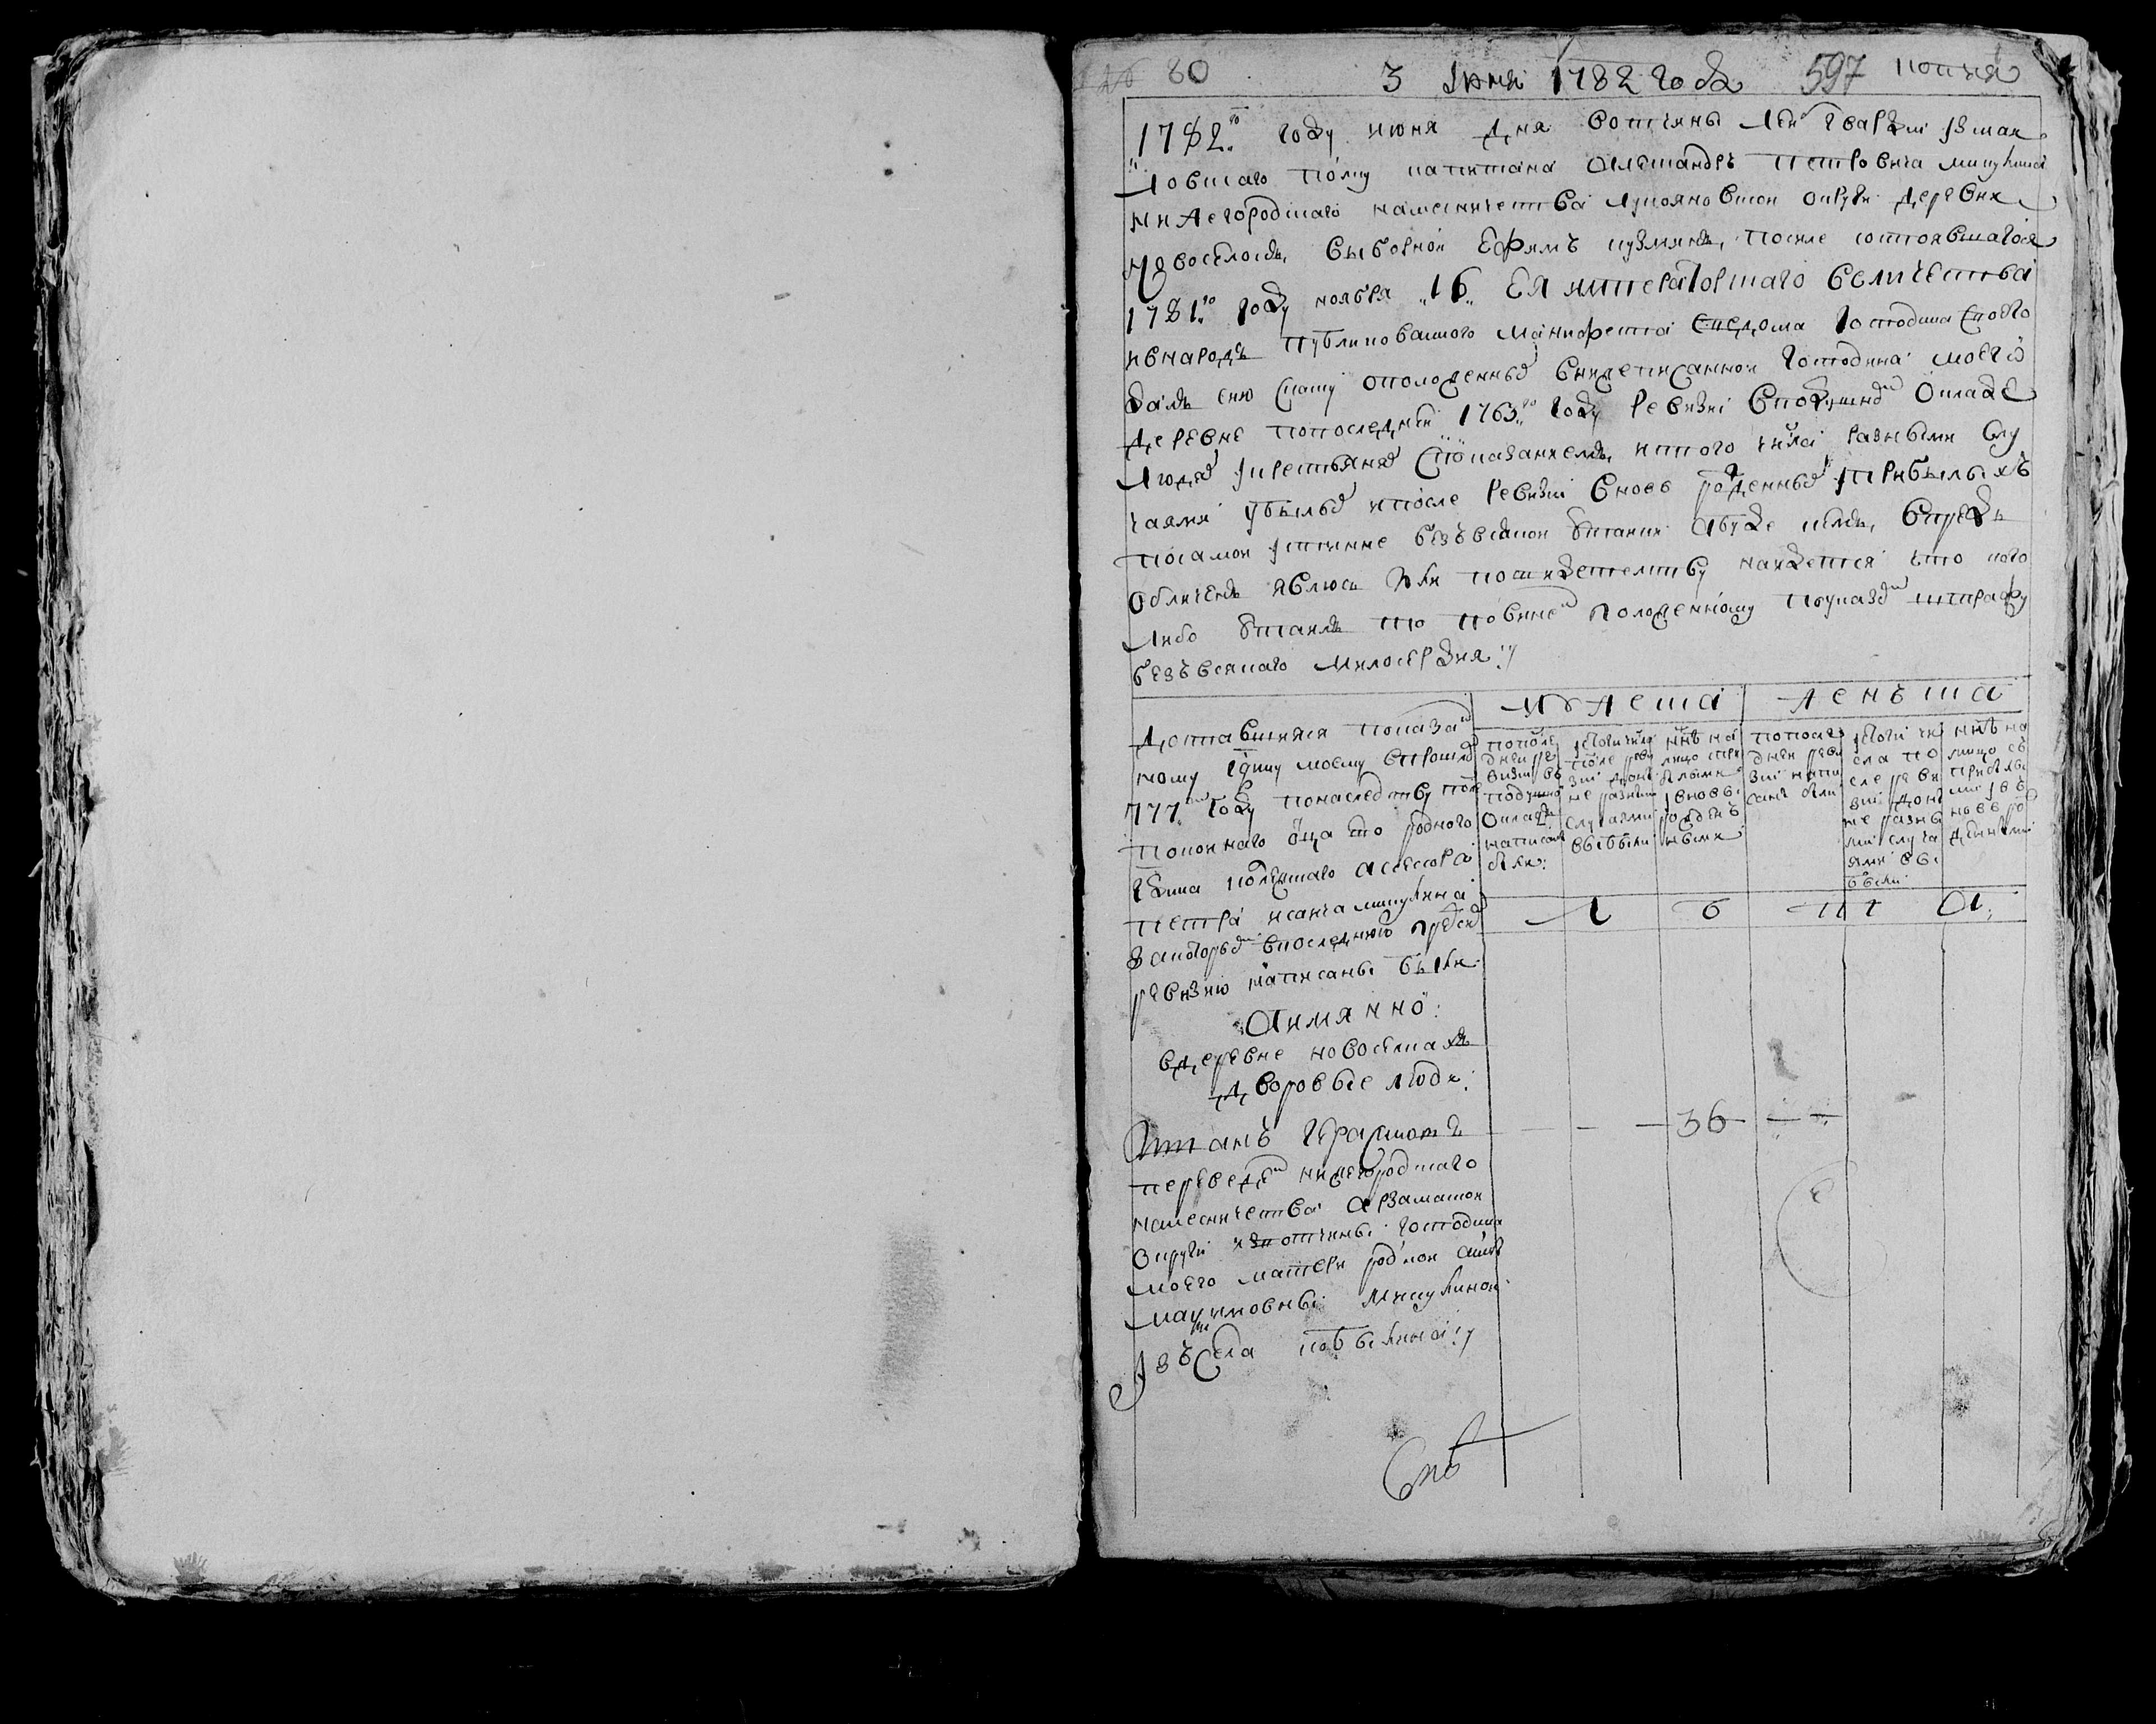 80 3 июня 1782 году 597 копия
1782го году июня дня вотчины лейб гвардии измаи
ловскаго полку капитана Александръ Петровича Микулина
нижегородского наместничества лукояновской округи деревни
Новоселокъ, выборной Ефимъ кузминъ, после состоявшагося
1781го году ноября 16 Ея императорскаго величества
и внародъ публикованного манифеста свѣдома господина своего
далъ сию скаску о положенныхъ вышеписанной господина моего
деревне попоследней 1763го году ревизии в подушной окладе
людяхъ и крестьянехъ споказаниемъ, ис того числа разными слу
чаями убылыхъ и после ревизии вновь рожденныхъ и прибылыхъ
по самой истинне безъ всякой утайки а буде кемъ, впредь
обличенъ явлюсь или по свидетелству найдется что кого
либо утаилъ то повиненъ положенному по указамъ штрафу
безъ всякаго милосердия
мужеска женъска
доставшияся показа
ному гдину моему впрошломъ
777м году понаследству после
покойнаго отца ево родного
гдина колежскаго асессора
Петра исаича микулина
за которымъ в последнюю пред сим
ревизию написаны были
попосле
дней ре
визии въ
подушной
окладъ
написаны
были
ис того числа
после реви
зии до ны
не разными
случаями
выбыли
ннѣ на
лицо при
былыми
и вновь
рожденъ
ными
попосле
дней реви
зии напи
саны были
ис того чи
сла по
сле реви
зии до ны
не разны
ми случа
ями вы
были
ннѣ на
лицо съ
прибылы
ми и въ
новь ро
жденными
Л б л
А имянно:
в деревне новоселкахъ
дворовые люди:
Степанъ Герасимовъ — — 36 — —
переведенъ нижегородскаго
наместничества Арзамаской
округи из вотчины господина
моего матери родной
микулиной
изъ села